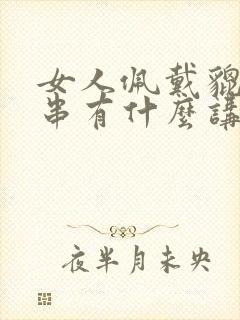 女人佩戴貔
串有什麼講
夜半月未央